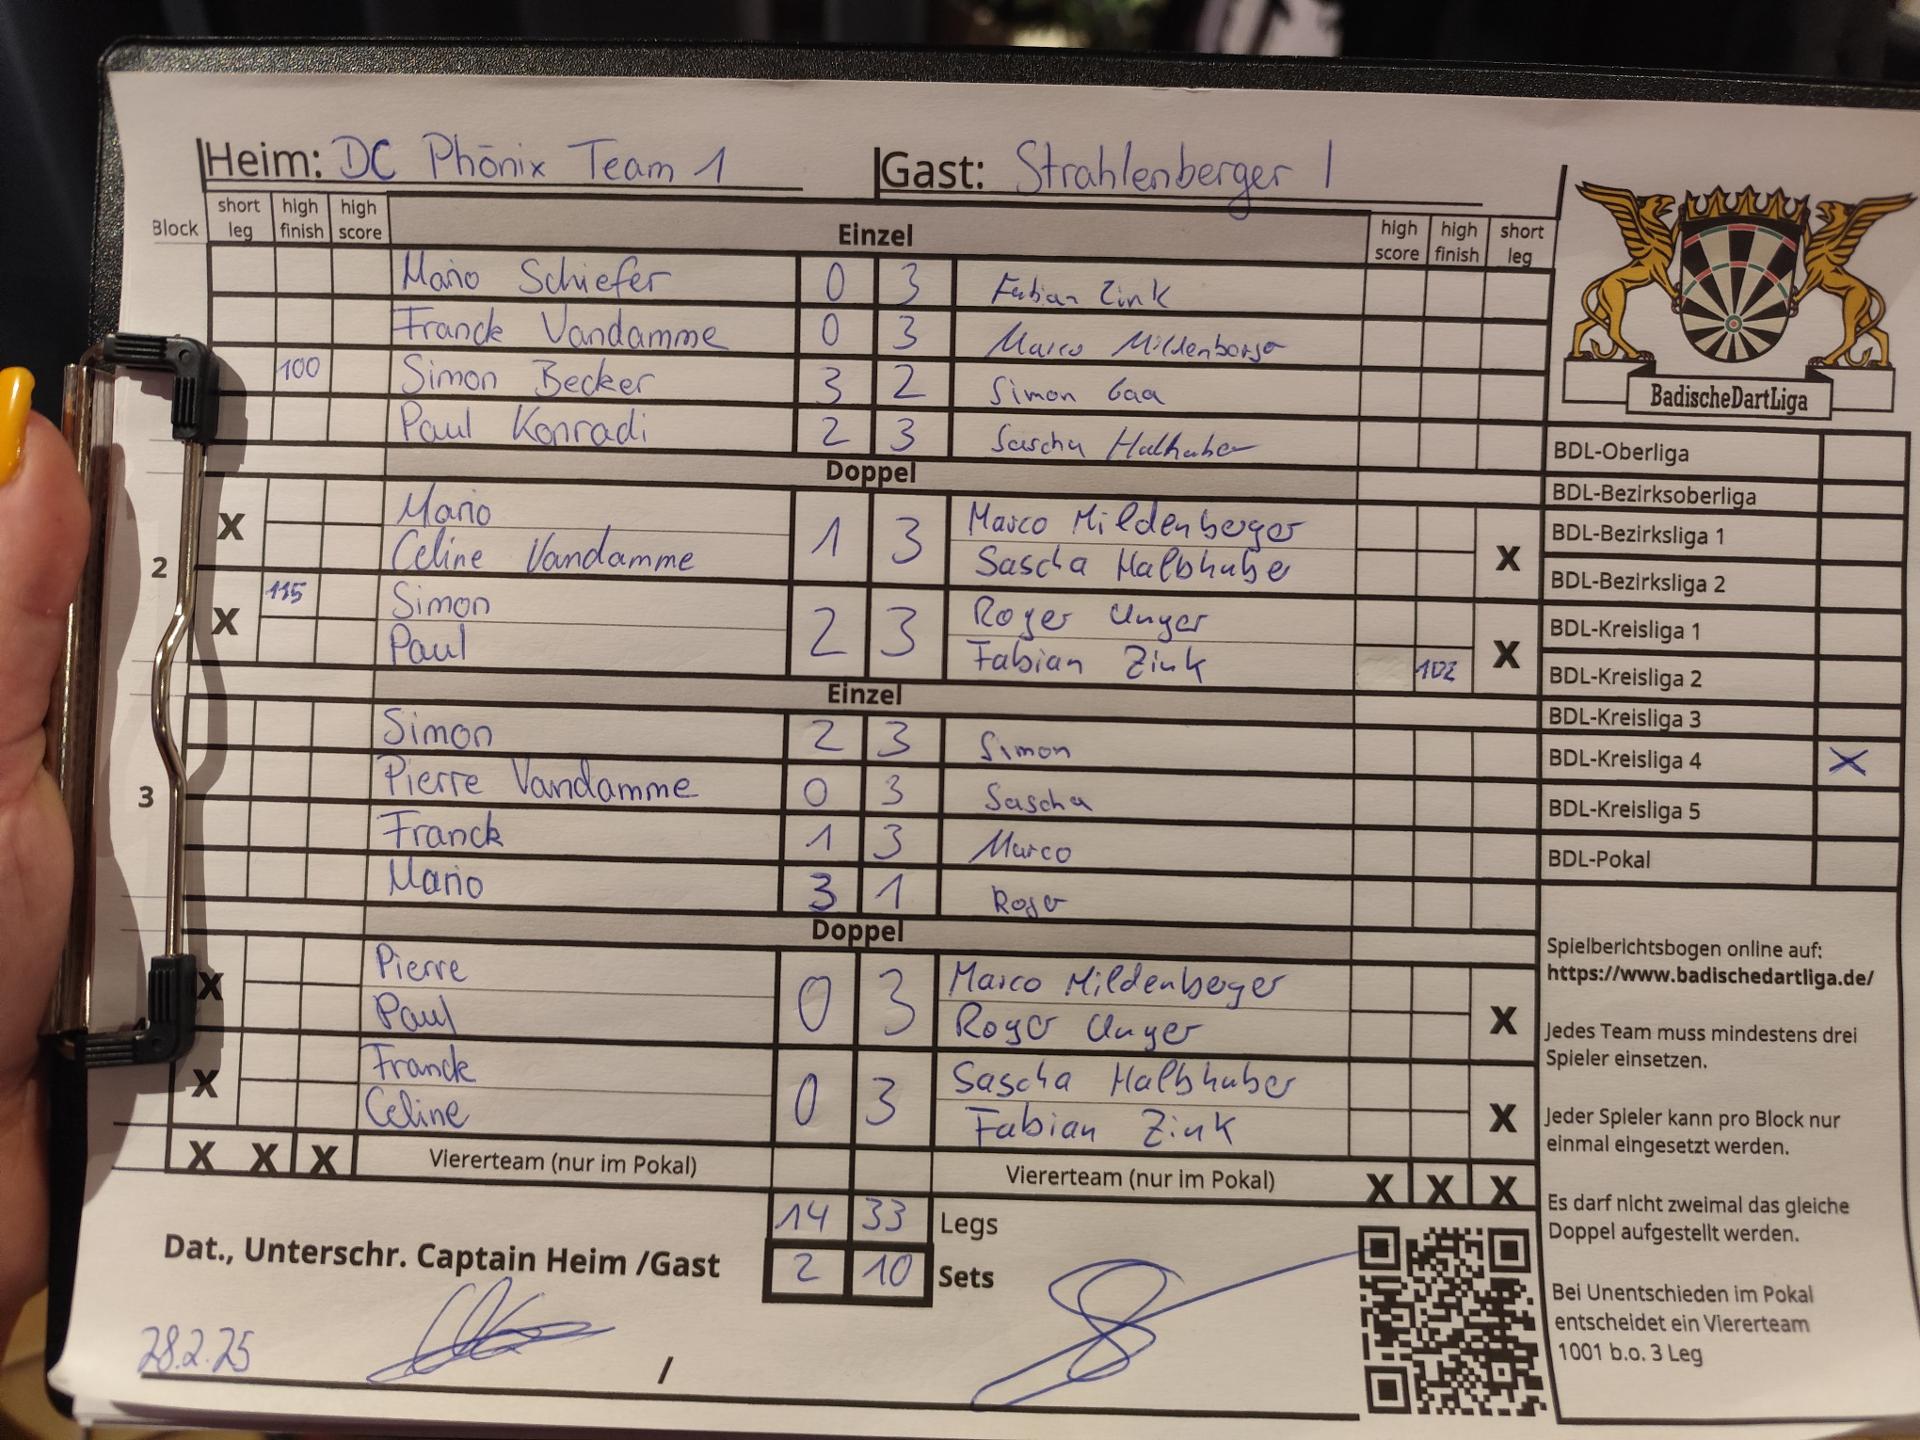 Heim: DC Phönix Team 1 Gast: Strahlenberger I
Block short leg high finish high score Einzel high score high finish short leg
Mario Schiefer 0 3 Fabian Zink
Franck Vandamme 0 3 Marco Mildenberger
100 Simon Becker 3 2 Simon Gaa
Paul Konradi 2 3 Sascha Halbhuber
Doppel
2
X Mario 1 3 Marco Mildenberger X
Celine Vandamme Sascha Halbhuber
X 115 Simon 2 3 Roger Unger X
Paul Fabian Zink 102
Einzel
3
Simon 2 3 Simon
Pierre Vandamme 0 3 Sascha
Franck 1 3 Marco
Mario 3 1 Roger
Doppel
X Pierre 0 3 Marco Mildenberger X
Paul Roger Unger
X Franck 0 3 Sascha Halbhuber X
Celine Fabian Zink
X X X Viererteam (nur im Pokal) Viererteam (nur im Pokal) X X X
14 33 Legs
2 10 Sets
Dat., Unterschr. Captain Heim /Gast
28.2.25 /
BadischeDartLiga
BDL-Oberliga
BDL-Bezirksoberliga
BDL-Bezirksliga 1
BDL-Bezirksliga 2
BDL-Kreisliga 1
BDL-Kreisliga 2
BDL-Kreisliga 3
BDL-Kreisliga 4 X
BDL-Kreisliga 5
BDL-Pokal
Spielberichtsbogen online auf:
https://www.badischedartliga.de/
Jedes Team muss mindestens drei
Spieler einsetzen.
Jeder Spieler kann pro Block nur
einmal eingesetzt werden.
Es darf nicht zweimal das gleiche
Doppel aufgestellt werden.
Bei Unentschieden im Pokal
entscheidet ein Viererteam
1001 b.o. 3 Leg